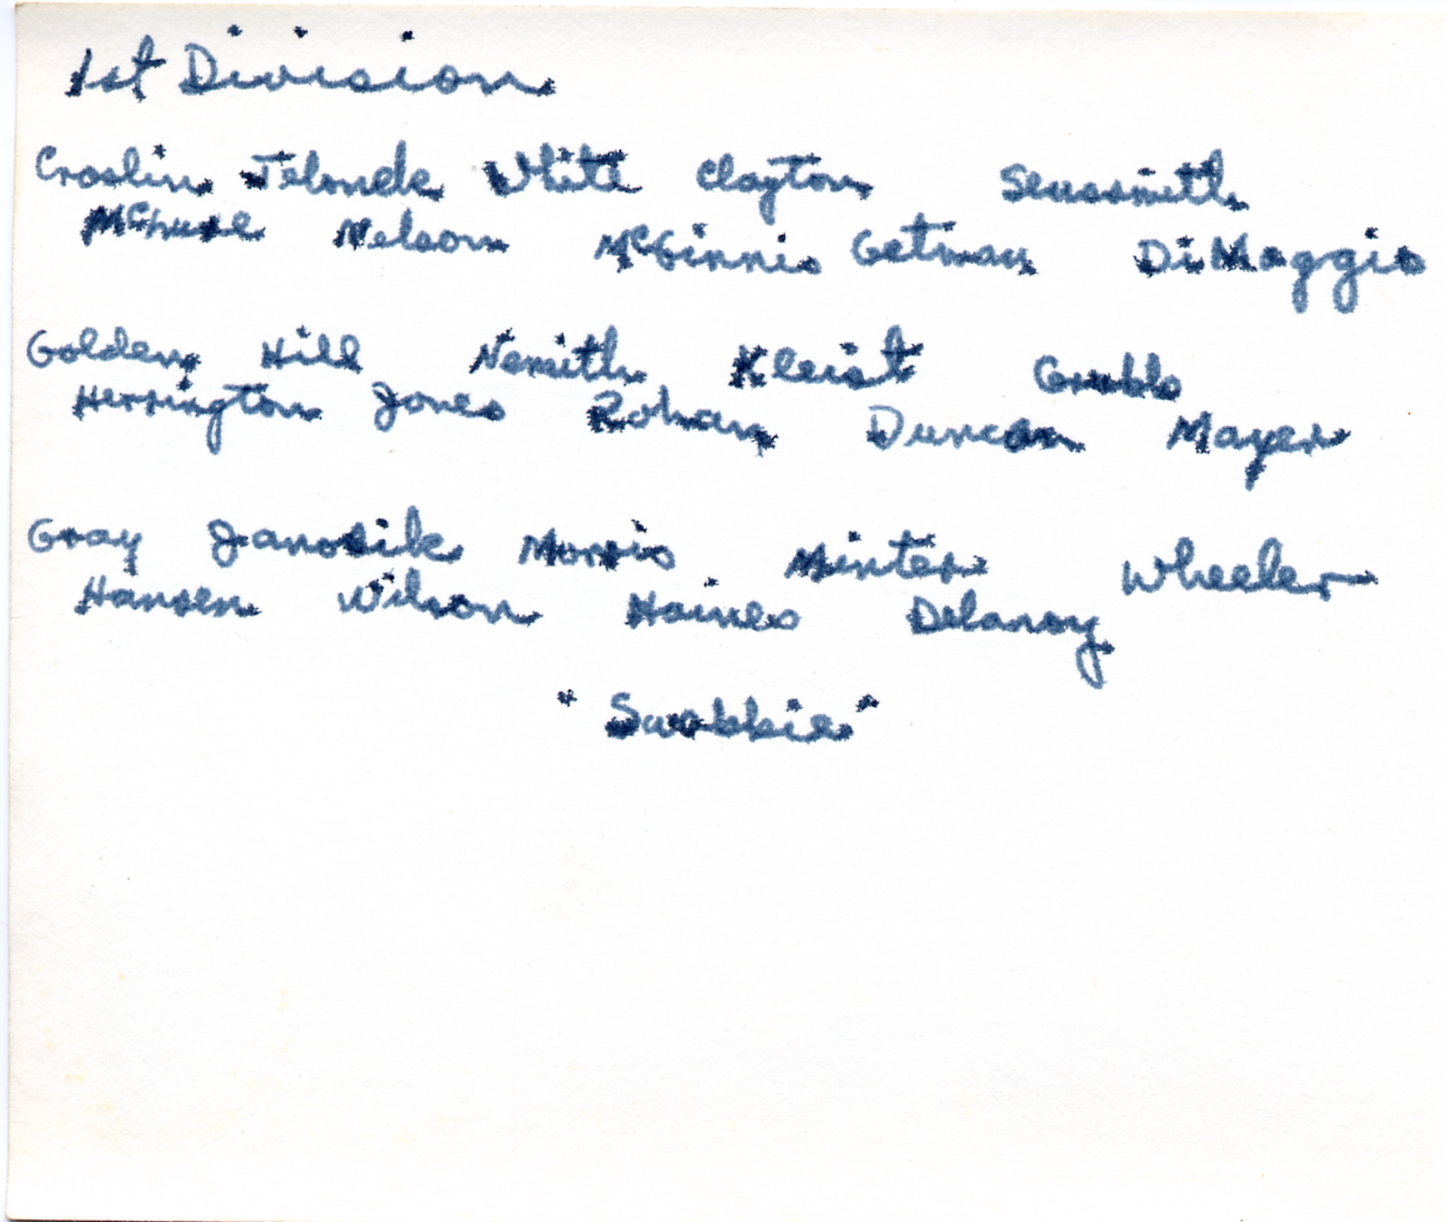 1st Division
Croslin White Clayton
Nelson McGinnis Getman DiMaggio
Golden Hill Nesmith Kleist Grubbs
Herrington Jones Rohan Duncan Mayer
Gray Janosik Morris Minter Wheeler
Hansen Wilson Haines Delanoy
"Swabbie"